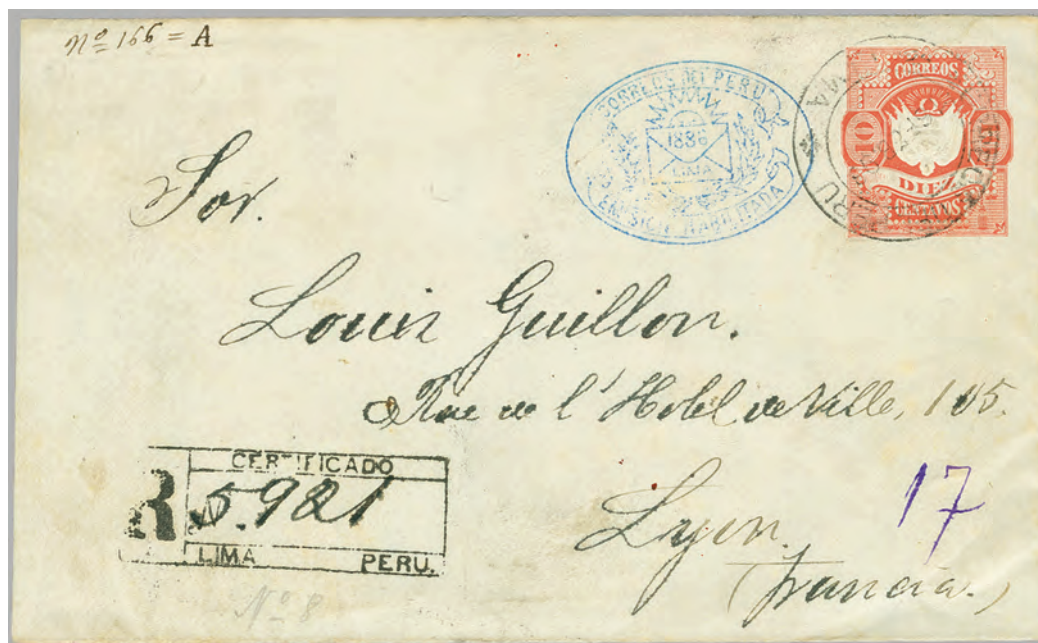 Nº 166 = A
CORREOS DEL PERU
1886
LIMA
EMISION HABILITADA
CORREOS
10 10
DIEZ
CENTAVOS
LIMA
PERU
Sor.
Louis Guillon.
Rue de l'Hotel de Ville, 105.
Lyon.
(Francia.)
17
R
CERTIFICADO
N. 5921
LIMA PERU.
Nº 8